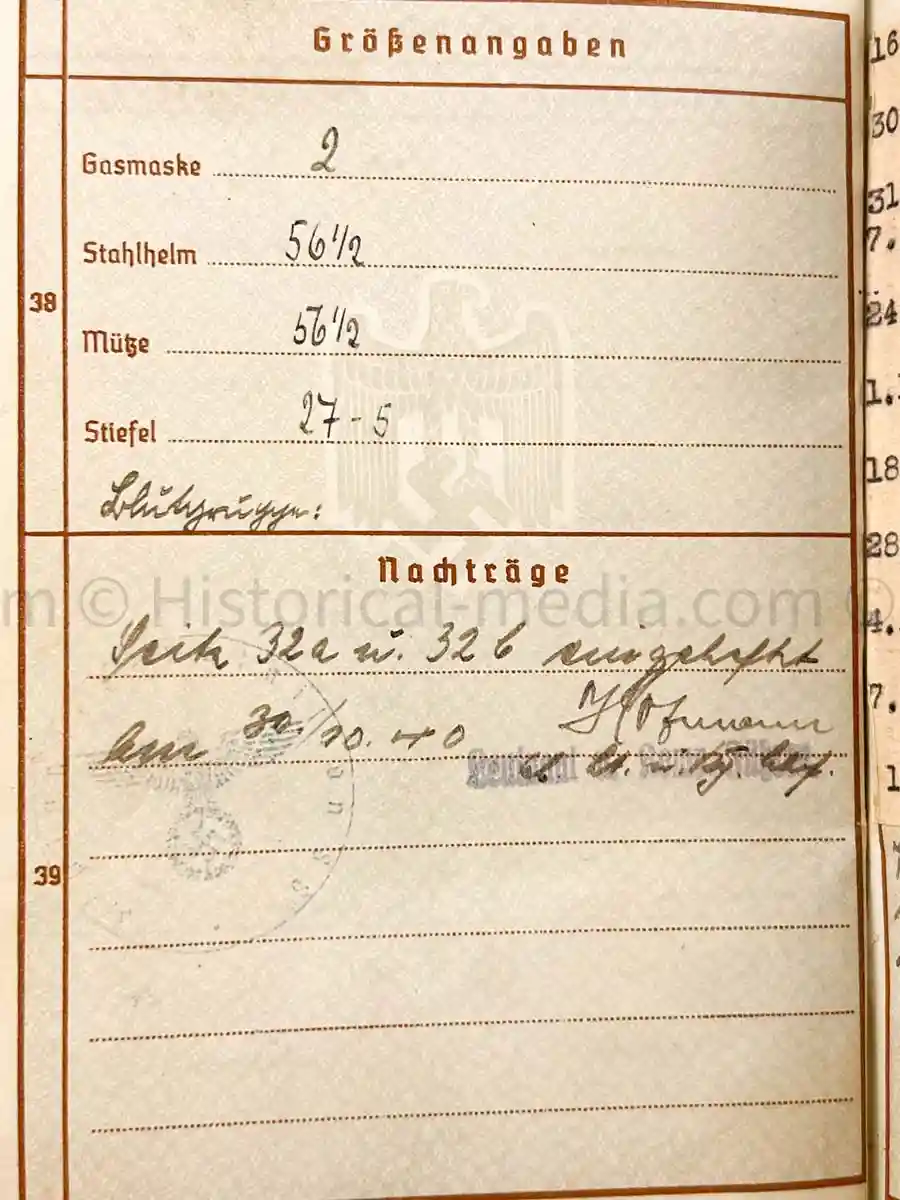 Größenangaben
Gasmaske 2
Stahlhelm 56 1/2
38
Mütze 56 1/2
Stiefel 27-5
Blutgruppe:
Nachträge
© Historical-media.com ©
Seite 32a u. 32b eingeheftet
am 30./10.40
Lt. u.
39
16
30
31
7.
24
1.
18
28
4.
7.
1